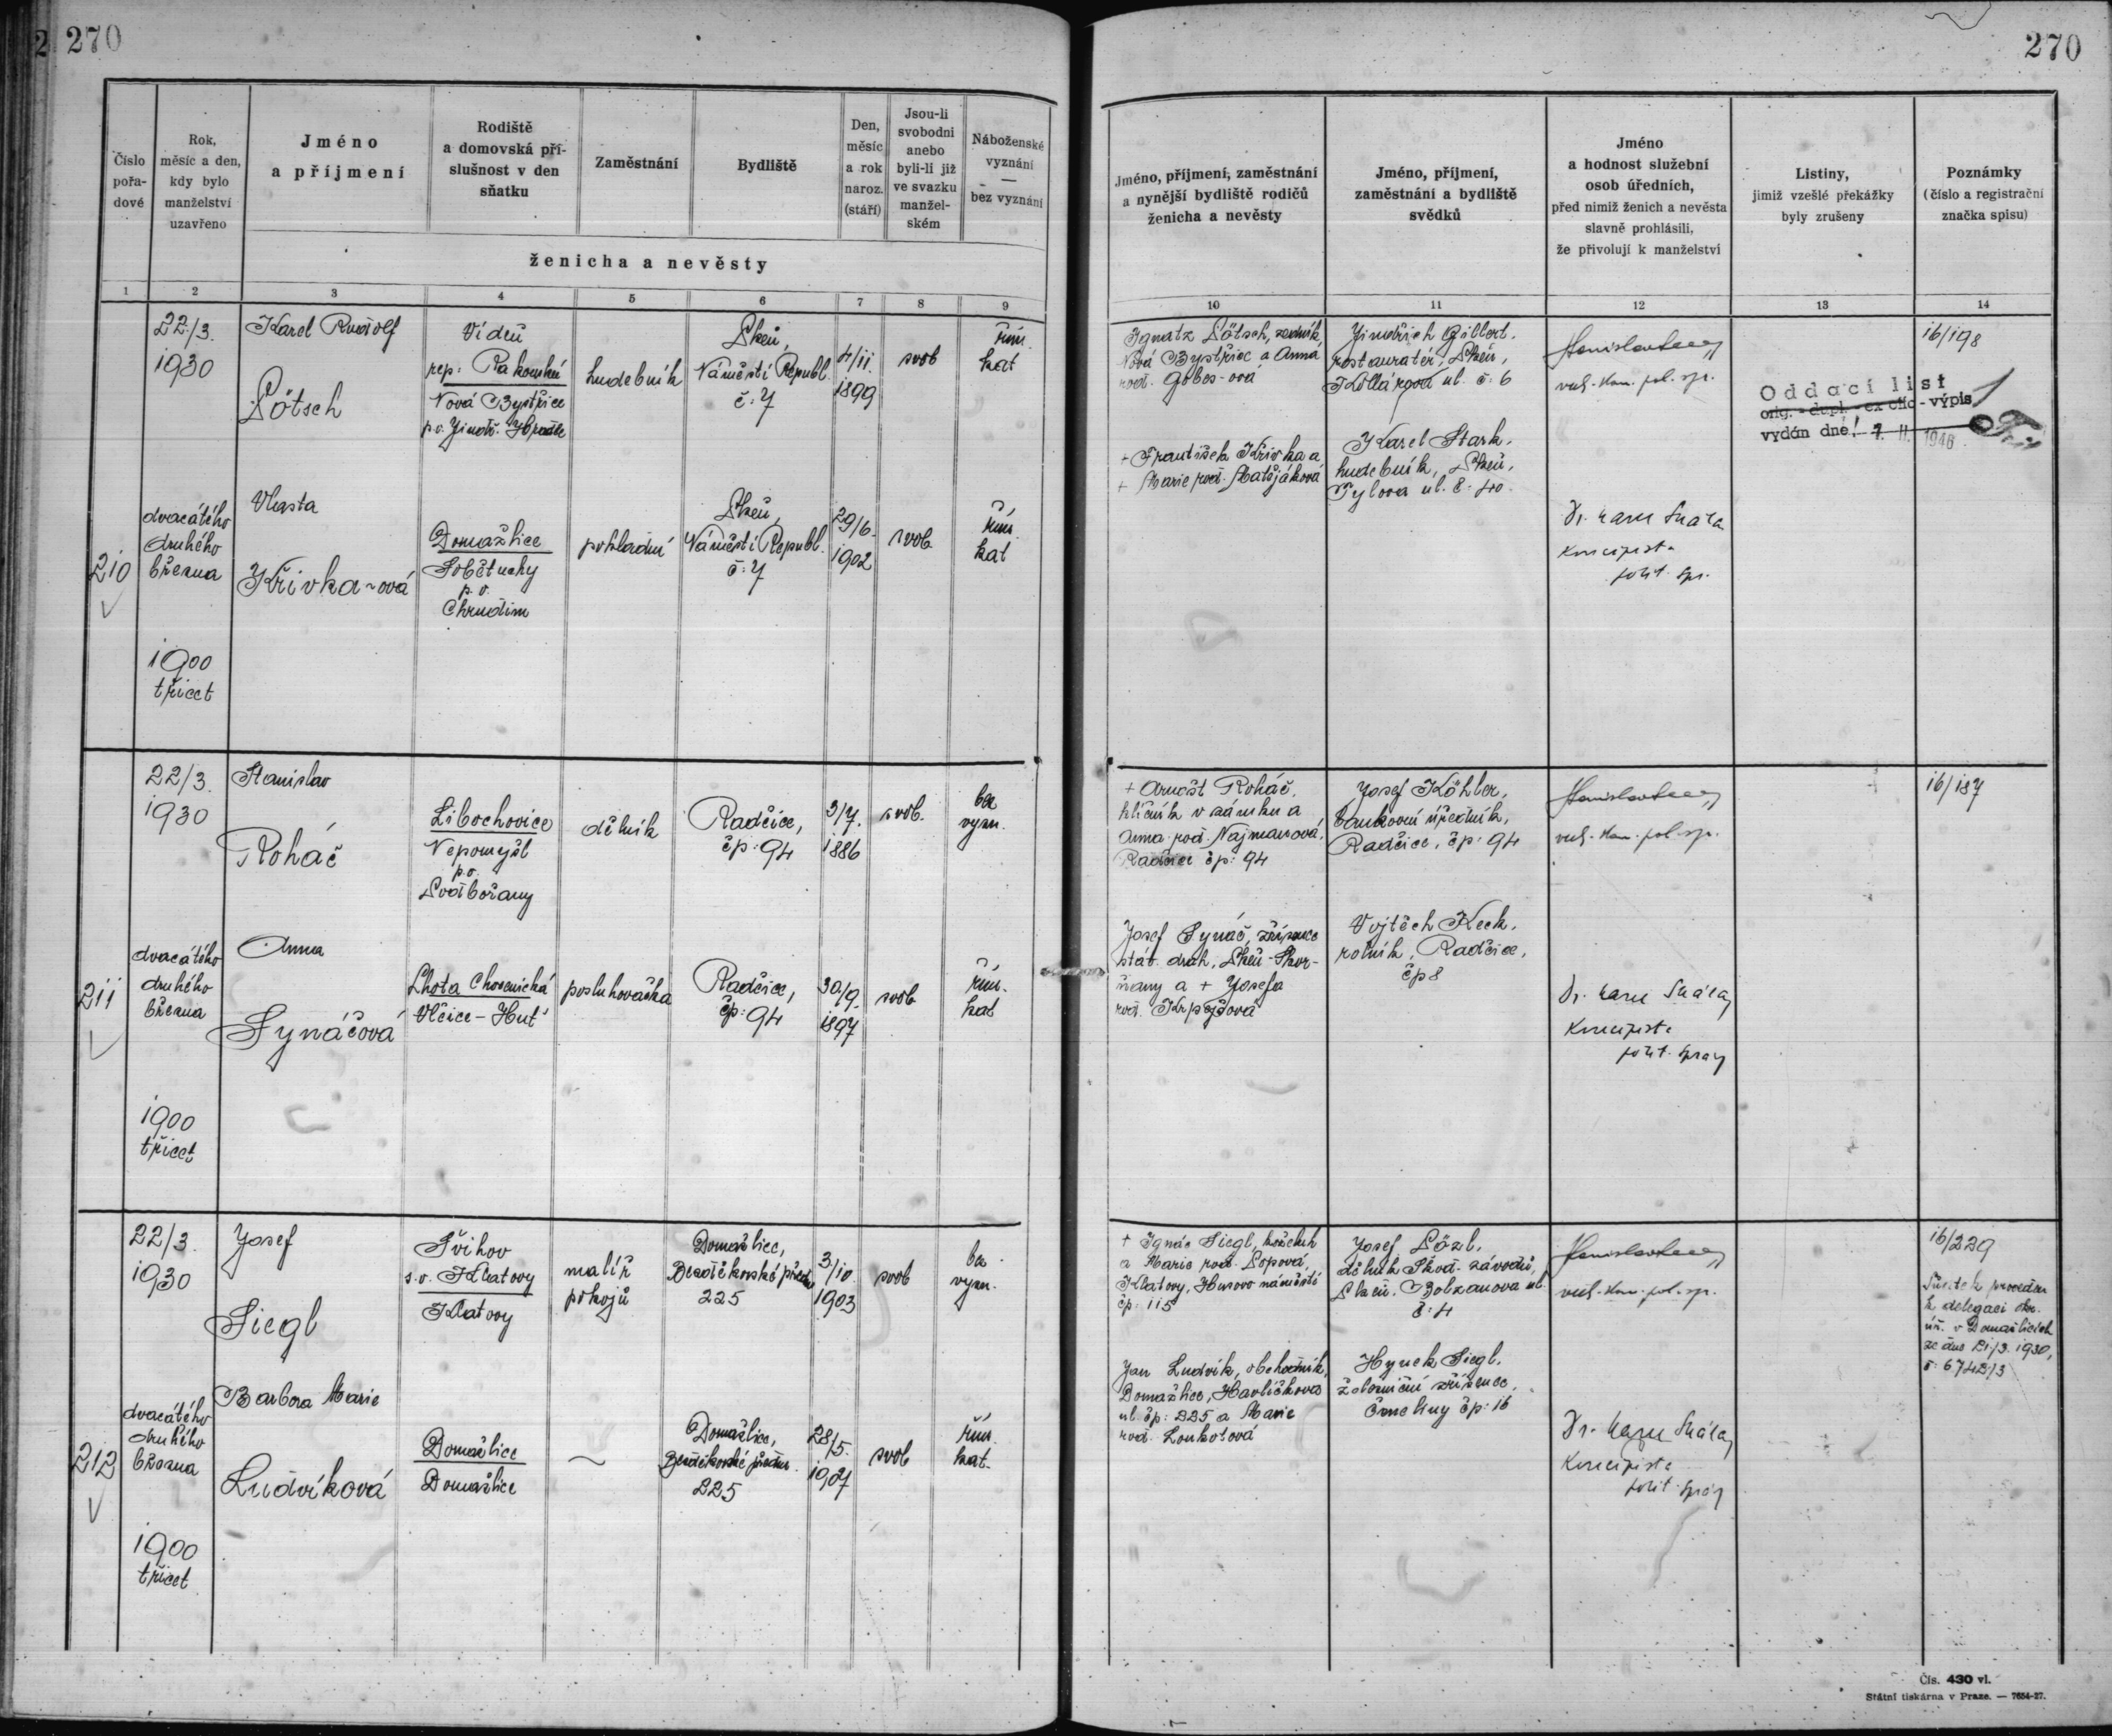 270
270
Číslo pořa-dové
Rok, měsíc a den, kdy bylo manželství uzavřeno
Jméno a příjmení
Rodiště a domovská pří-slušnost v den sňatku
Zaměstnání
Bydliště
Den, měsíc a rok naroz. (stáří)
Jsou-li svobodni anebo byli-li již ve svazku manžel-ském
Náboženské vyznání — bez vyznání
ženicha a nevěsty
Jméno, příjmení, zaměstnání a nynější bydliště rodičů ženicha a nevěsty
Jméno, příjmení, zaměstnání a bydliště svědků
Jméno a hodnost služební osob úředních, před nimiž ženich a nevěsta slavně prohlásili, že přivolují k manželství
Listiny, jimiž vzešlé překážky byly zrušeny
Poznámky (číslo a registrační značka spisu)
1 2 3 4 5 6 7 8 9 10 11 12 13 14
210
22./3.
1930
dvacátého
druhého
března
1900
třicet
Karel Rudolf
Pötsch
Vídeň
rep: Rakouská
Nová Bystřice
p.o. Jindř. Hradec
hudebník
Plzeň,
Náměstí Republ.
č: 7
4/11.
1899
svob
řím.
kat
Vlasta
Křivka-ová
Domažlice
Sobětuchy
p.o.
Chrudim
pokladní
Plzeň,
Náměstí Republ.
č: 7
29/6.
1902
svob
řím.
kat
Ignatz Pötsch, zedník,
Nová Bystřice a Anna
rod. Göbes-ová
+ František Křivka a
+ Marie rod. Matějáková
Jindřich Gilbert.
restauratér, Plzeň,
Kollárova ul. č: 6
Karel Stark.
hudebník, Plzeň,
Tylova ul. č. 40.
pol. spr.
Dr.
koncipista
polit. spr.
Oddací list
orig. - dupl. - ex offo - výpis
vydán dne: 7. II. 1946
16/198
211
22/3.
1930
dvacátého
druhého
března
1900
třicet
Stanislav
Roháč
Libochovice
Nepomyšl
p.o.
Podbořany
dělník
Radčice,
čp: 94
3/7.
1886
svob.
bez
vyzn.
Anna
Synáčová
Lhota Chocenická
Vlčice-Huť
posluhovačka
Radčice,
čp: 94
30/9.
1897
svob
řím.
kat
+ Arnošt Roháč,
klíčník v zámku a
Anna rod. Najmanová,
Radčice čp: 94
Josef Synáč, zřízenec
stát. drah, Plzeň-Skvr-
ňany a + Josefa
rod.
Josef Köhler,
bankovní úředník,
Radčice, čp: 94
Vojtěch Keck.
rolník, Radčice,
čp 8
pol. spr.
Dr.
koncipista
polit. správy
16/187
212
22/3.
1930
dvacátého
druhého
března
1900
třicet
Josef
Siegl
Švihov
s.o. Klatovy
Klatovy
malíř
pokojů
Domažlice,
Bezděkovské předm.
225
3/10.
1903
svob
bez
vyzn.
Barbora Marie
Ludvíková
Domažlice
Domažlice
~
Domažlice,
Bezděkovské předm.
225
28/5.
1907
svob
řím.
kat.
+ Ignác Siegl, koželuh
a Marie rod. Popová,
Klatovy, Husovo náměstí
čp: 115
Jan Ludvík, obchodník,
Domažlice, Havlíčkova
ul. čp: 225 a Marie
rod. Loukotová
Josef
dělník Škod. závodů,
Plzeň, Bolzanova ul.
č: 4
Hynek Siegl.
železniční zřízenec,
čp: 16
pol. spr.
Dr.
koncipista
polit. správy
16/229
Sňatek proveden
k delegaci okr.
úř. v Domažlicích
ze dne 21/3. 1930,
č: 6742/3
Čís. 430 vl.
Státní tiskárna v Praze. — 7654-27.